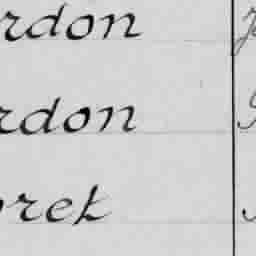 rdon
rdon
ret